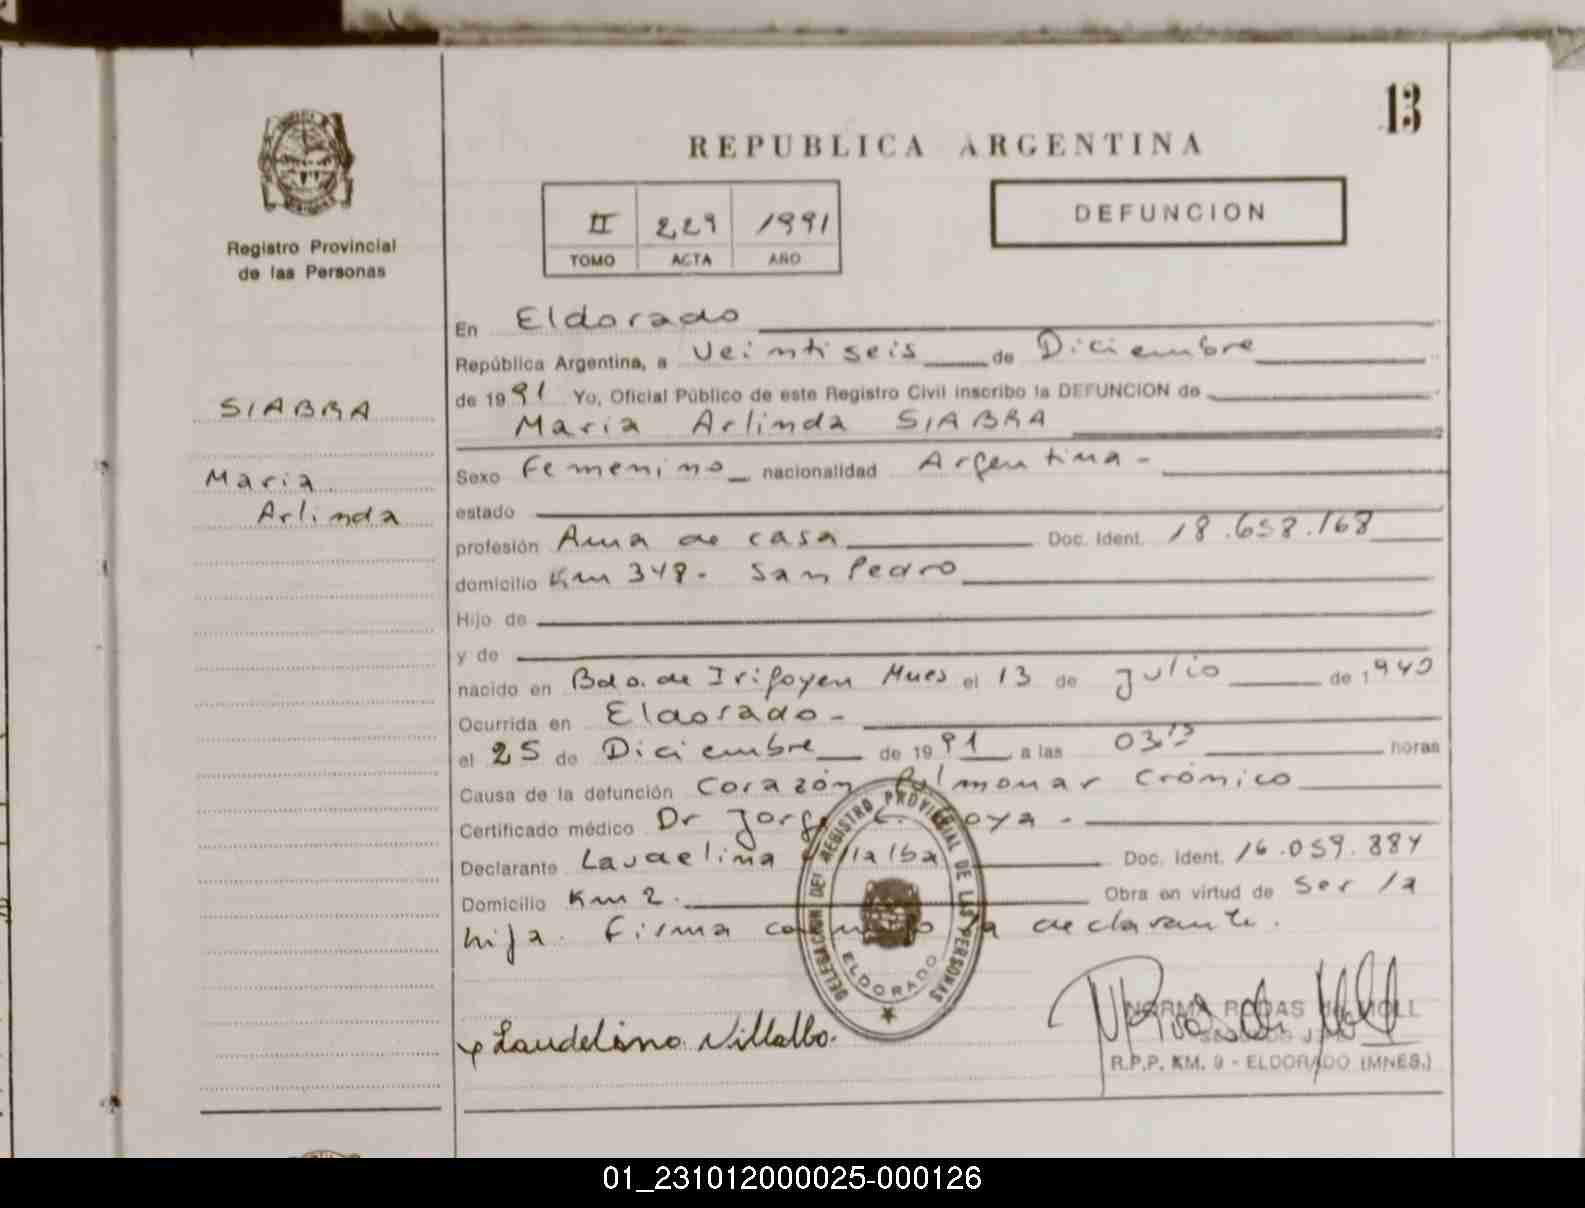 13
REPUBLICA ARGENTINA
II 229 1991
TOMO ACTA AÑO
DEFUNCION
Registro Provincial
de las Personas
SIABRA
Maria
Arlinda
En Eldorado
República Argentina, a Veintiseis de Diciembre
de 1991 Yo, Oficial Público de este Registro Civil inscribo la DEFUNCION de
Maria Arlinda SIABRA
Sexo Femenino nacionalidad Argentina -
estado
profesión Ama de casa Doc. Ident. 18.658.168
domicilio Km 348. San Pedro
Hijo de
y de
nacido en Bdo. de Irigoyen Mnes el 13 de Julio de 1940
Ocurrida en Eldorado -
el 25 de Diciembre de 1991 a las horas
Causa de la defunción Corazón Pulmonar Crónico
Certificado médico Dr Jorge -
Declarante Laudelina Villalba Doc. Ident. 16.059.884
Domicilio Km 2. Obra en virtud de Ser la
hija. Firma conmigo la declarante.
DELEGACION DEL REGISTRO PROVINCIAL DE LAS PERSONAS
ELDORADO
Laudelina Villalba.
NORMA RODAS de MOLL
R.P.P. KM. 9 - ELDORADO (MNES.)
01_231012000025-000126